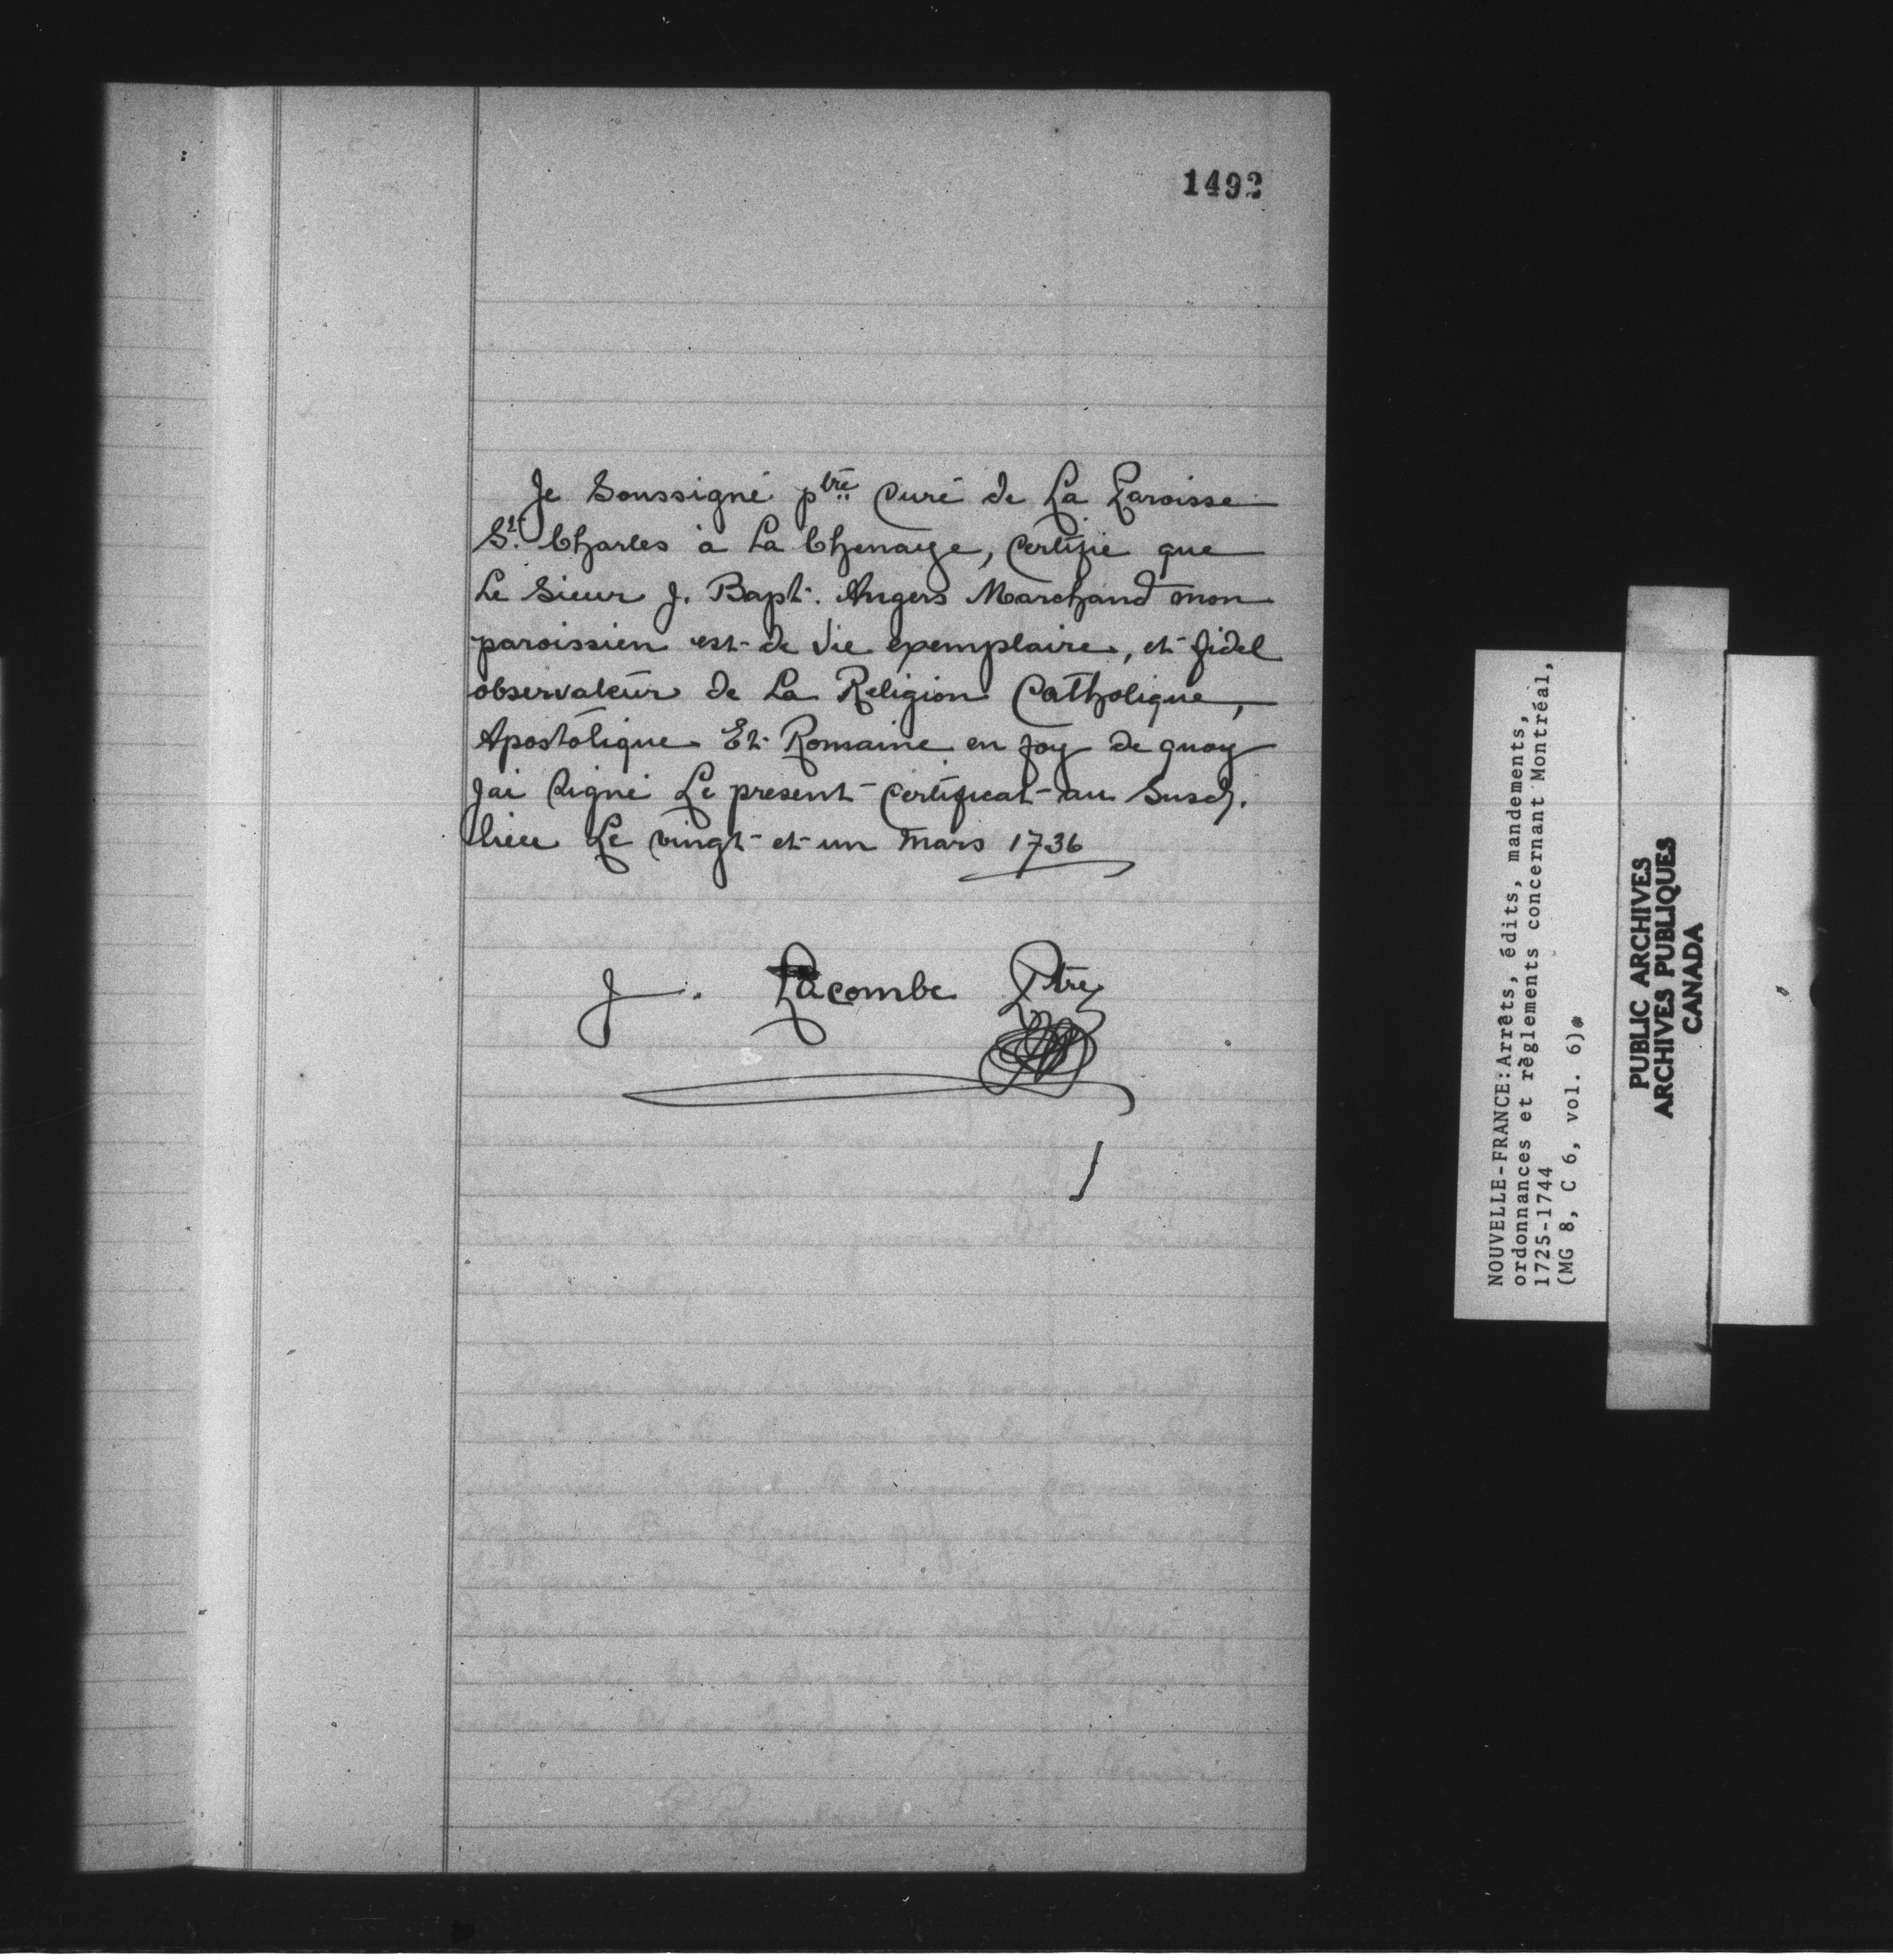 1492
Je Soussigné ptre Curé de La Paroisse
St. Charles à La Chenaye, certifie que
Le Sieur J. Bapt. Angers Marchand mon
paroissien est de vie exemplaire, et fidel
observateur de La Religion Catholique,
Apostolique Et Romaine en foy de quoy
Jai signé Le present certificat au susd.
lieu Le vingt et un mars 1736
J. Lacombe Ptre
NOUVELLE-FRANCE:Arrêts, édits, mandements,
ordonnances et règlements concernant Montréal,
1725-1744
(MG 8, C 6, vol. 6)
PUBLIC ARCHIVES
ARCHIVES PUBLIQUES
CANADA